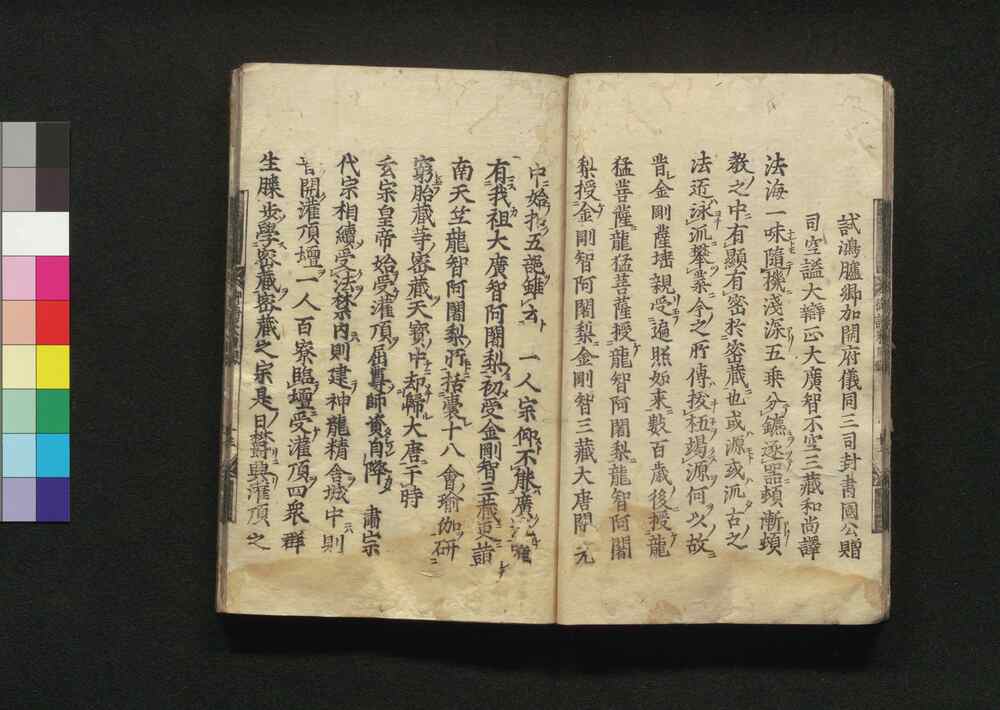 試鴻臚卿加開府儀同三司封書國公贈
司空謚大辯正大廣智不空三藏和尚譯
法海一味隨機淺深五乘分鑣逐器頓漸頓
教之中有顯有密於密藏也或源或派古之
法匠泳派攀葉今之所傳拔柢竭源何以故
昔金剛薩埵親受遍照如來數百歲後授龍
猛菩薩龍猛菩薩授龍智阿闍梨龍智阿闍
梨授金剛智阿闍梨金剛智三藏大唐開元
中始扣五部雖云一人宗仰不能廣
有我祖大廣智阿闍梨初受金剛智三藏更詣
南天竺龍智阿闍梨所括囊十八會瑜伽研
窮胎藏等密藏天寶中却歸大唐于時
玄宗皇帝始受灌頂屈尊師資自降肅宗
代宗相續受法禁內則建神龍精舍城中則
普開灌頂壇一人百寮臨壇受灌頂四衆群
生膝步學密藏密藏之宗是日欝興灌頂之